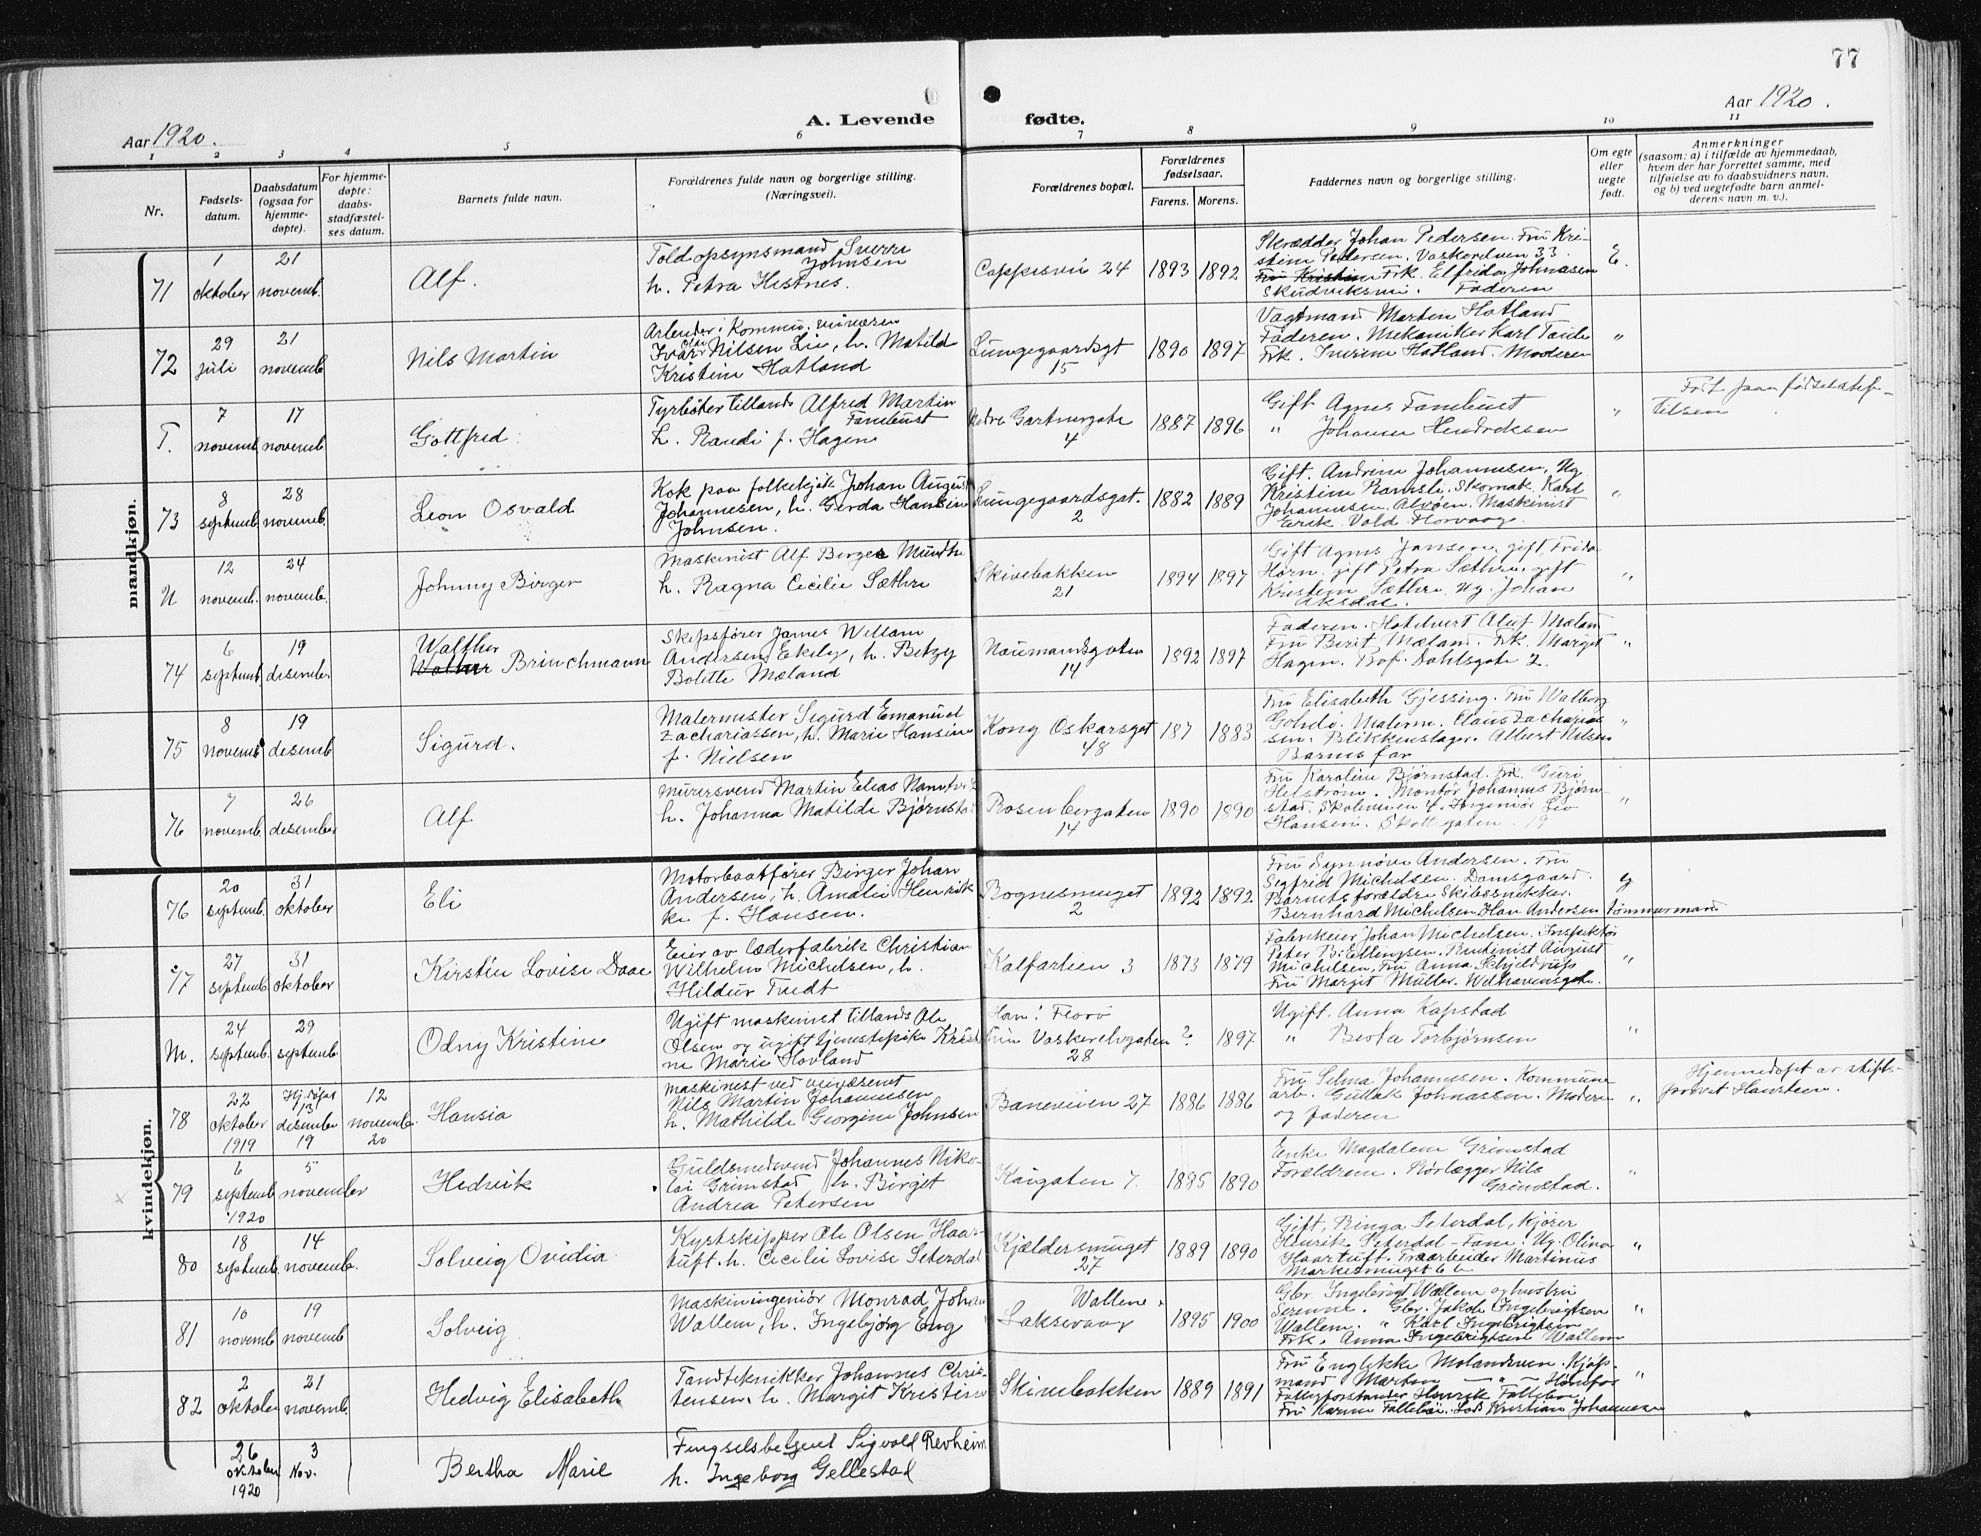 77
Aar 1920.
A. Levende
fødte.
Aar 1920.
1 2 3 4 5 6 7 8 9 10 11
Nr.
Fødsels-
datum.
Daabsdatum
(ogsaa for
hjemme-
døpte).
For hjemme-
døpte:
daabs-
stadfæstel-
ses datum.
Barnets fulde navn.
Forældrenes fulde navn og borgerlige stilling.
(Næringsvei).
Forældrenes bopæl.
Forældrenes
fødselsaar.
Farens. Morens.
Faddernes navn og borgerlige stilling.
Om egte
eller
uegte
født.
Anmerkninger
(saasom: a) i tilfælde av hjemmedaab,
hvem der har forrettet samme, med
tilføielse av to daabsvidners navn,
og b) ved uegtefødte barn anmel-
derens navn m. v.).
mandkjøn.
71
1
oktober
21
novemb.
Alf.
Toldopsynsmand Sverre
Johnsen
h. Petra Histnes.
Cappesvei 24
1893 1892
Skrædder Johan Pedersen. Fru Kri-
stine Pedersen. Vaskerelven 33.
Frk. Elfrida Johnasen
Skudviksvei. Faderen
E.
72
29
juli
21
novemb.
Nils Martin
Ivar Olai Nilsen Lie, h. Matild
Kristine Hatland
Lungegaardsgt
15
1890 1897
Vagtmand Martin Hatland
Faderen. Mekaniker Karl
Frk. Hatland. Moderen
"
T.
7
novemb.
17
novemb.
Gottfred
Alfred Martin
Famhust
h. Randi f. Hagen
Nedre Gartnergate
4
1887 1896
Gift Agnes Famhust
" Johanne Hendreksen
"
Født paa fødselsstif-
telsen
73
8
septemb.
28
novemb.
Leon Osvald
Kok paa folkekjøk Johan August
Johannesen, h. Gerda Hansine
Johnsen.
Lungegaardsgat.
2
1882 1889
Gift. Andrine Johannesen, Ug.
Kristine Ramsli. Skomak. Karl
Johannesen, Alvøen. Maskinist
Erik Vold Florvaag.
"
U
12
novemb.
24
novemb.
Johnny Birger
Maskinist Alf Birger Munthe
h. Ragna Cecilie Sæthre
Skivebakken
21
1894 1897
Gift Agnes Jansen, gift Frida
Horn. gift Petra Sæthre, gift
Kristine Sæthre. Ug. Johan
Aksdal.
"
74
6
septemb.
19
desember
Walther
Brinchmann
Skipsfører James Wellam
Andersen Ekely, h. Betzy
Bolette Mæland
Neumannsgaten
14
1892 1897
Faderen. Oluf Mæland
Fru Berit Mæland. Frk. Margit
Hagen. Prof. Dahlsgate 2.
"
75
8
novemb.
19
desemb.
Sigurd.
Malermester Sigurd Emanuel
Zachariassen, h. Marie Hansine
f. Nielsen
Kong Oskarsgat
48
187 1883
Fru Elisabeth Gjessing. Fru Walborg
Malerm. Claus Zacharias-
sen. Blikkenslager. Albert Nilsen
Barnets far
"
76
7
novemb.
26
desember
Alf
Murersvend Martin Elias
h. Johanna Matilde Bjørnstad
Rosenbergaten
14
1890 1890
Fru Karoline Bjørnstad. Frk. Guri
Helstrøm. Montør Johannes Bjørn-
stad. Skoleveien 4. Ingeniør Leo
Hansen. Skottegaten 19
"
kvindekjøn.
76
20
septemb.
31
oktober
Eli
Motorbaatfører Birger Johan
Andersen, h. Amalie Henrik-
ke f. Hansen.
Rognesmuget
2
1892 1892
Fru Synnøve Andersen. Fru
Segfrid Michelsen. Damsgaard.
Barnets forældre. Skibssnekker.
Bernhard Michelsen. Han Andersen tømmermand
eg
77
27
septemb.
31
oktober
Kirstin Lovise Daae
Eier av Læderfabrik Christian
Wilhelm Michelsen, h.
Hildur Tvedt
Kalfarlien 3
1873 1879
Fabrikeier Johan Michelsen. Inspektør
Peter B. Ellingsen. Bentinist August
Michelsen, Fru Anna Schjeldrup
Fru Margit Müller. Welhavensgate.
"
M.
24
septemb.
29
septemb.
Odny Kristine
Ugift maskinist tillands Ole
Olsen og ugift tjenestepike Kristi
ne Marie Hovland
Han: Florø
Hun Vaskerelvgaten
28
? 1897
Ugift. Anna Kapstad
" Berta Torbjørnsen
"
78
22
oktober
1919
Hj.døpt
13
desember
19
12
novemb.
20
Hansia
Maskinist ved veivæsenet
Nils Martin Johannesen
h. Mathilde Georgine Johnsen
Baneveien 27
1886 1886
Fru Selma Johannesen. Kommune
arb. Gullak Johnassen. Moderen
og faderen
"
Hjemmedøpt av stifts-
provst Hansteen.
79
6
septemb.
1920
5
november
Hedvik
Guldsmedsvend Johannes Niko-
lai Grimstad h. Birget
Andrea Petersen
Kaigaten 7.
1885 1890
Enke Magdalene Grimstad
Forældrene. Rørlægger Nils
Grimstad.
"
80
18
septemb.
14
novemb.
Solveig Ovidia
Kystskipper Ole Olsen Haar-
tuft. h. Cecilie Lovise Seterdal
Kjeldersmuget
27
1889 1890
Gift. Ringa Seterdal, Kjører
Henrik Seterdal - Fane. Ug. Olina
Haartuft. Træarbeider Martinus
Markesmuget 6 b
"
81
10
novemb.
19
novemb.
Solveig
Maskiningeniør Monrad Johan
Wallem, h. Ingebjørg Eng
Wallene,
Laksevaag
1895 1900
Gbr. Ingebrigt Wallem og hustru
Serenne. Gbr. Jakob Ingebrigtsen
Wallem. " Karl Ingebrigtsen
Frk. Anna Ingebrigtsen Wallem
"
82
2
oktober
21
novemb.
Hedvig Elisabeth
Tandtekniker Johannes Chris-
tensen, h. Margit Kristine
Skivebakken
1889 1891
Fru Englekke Molandsveen. Kjøp-
mand Morten — " — Hønefos
Fallesforstander Henrik Fallebøe
Fru Karine Fallebøe. Lods Kristian Johannesen
"
26
oktober
1920
3
Nov.
Bertha Marie
Fengselsbetjent Sigvald Revheim
h. Ingeborg Gellestad